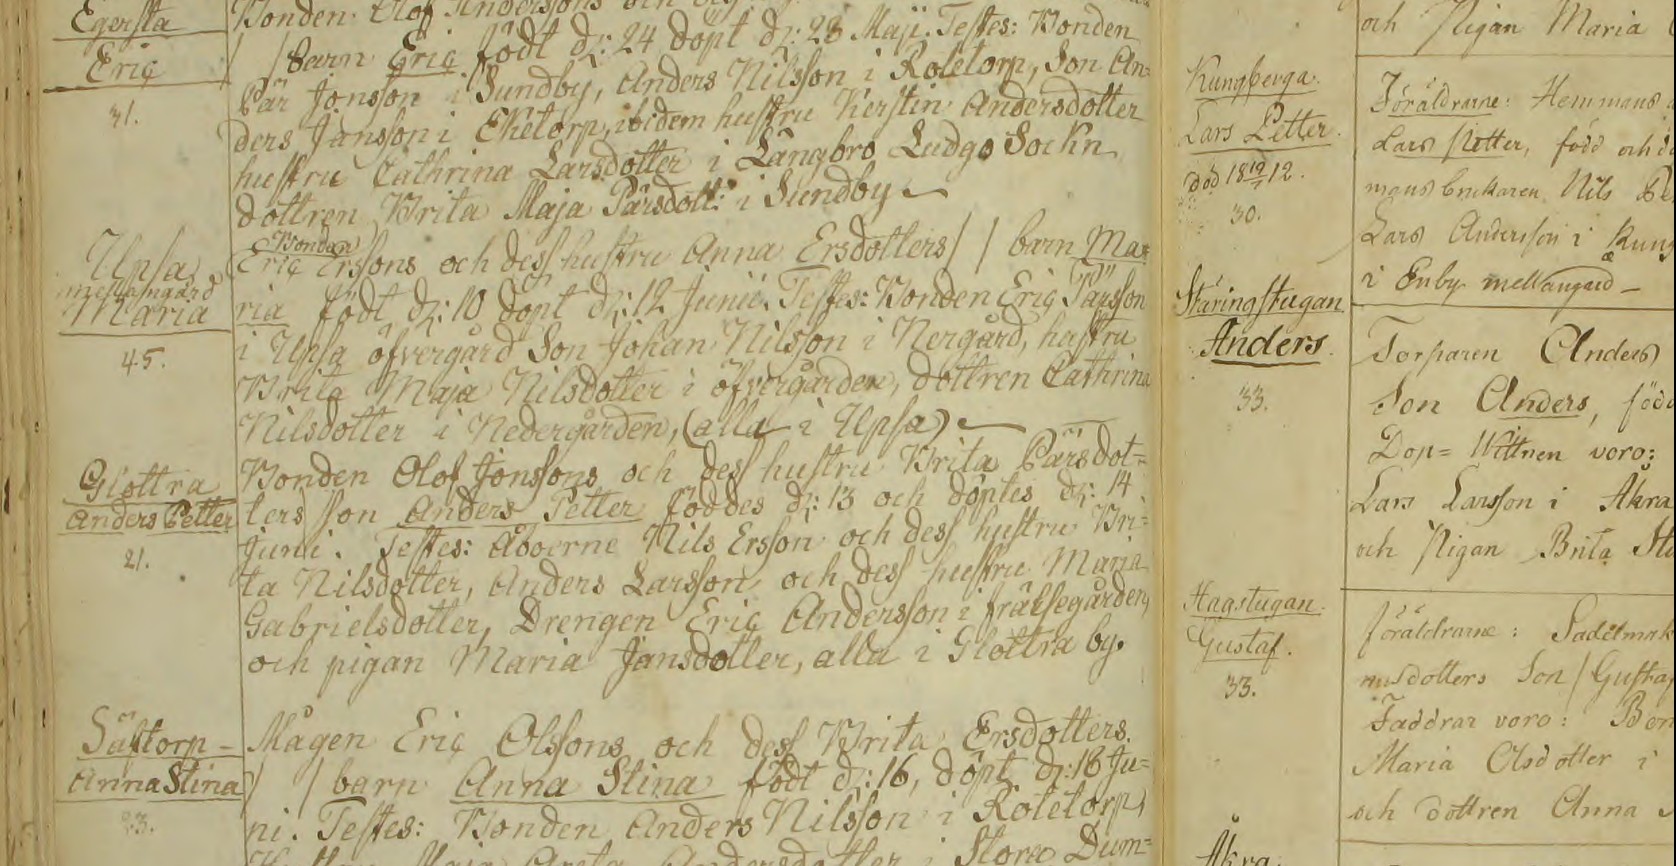 Egersta
Eric
31.
Bonden Olof Anderssons och
barn Eric födt d: 24 döpt d: 28 Maji. Testes: Bonden
Pär Jonsson i Sundby, Anders Nilsson i Roletorp, Son An=
ders Jansson i Eketorp, ibidem hustru Kerstin Andersdotter
hustru Cathrina Larsdotter i Långbro Ludgo Sockn
dottren Brita Maja Pärsdott: i Sundby
Upsa
mellangård
Maria
45.
Bonden
Eric Erssons och dess hustru Anna Ersdotters barn Ma=
ria födt d: 10 döpt d: 12 Junii. Testes: Bonden Eric Pärsson
i Upsa öfvergård Son Johan Nilsson i Nergård, hustru
Brita Maja Nilsdotter i öfvergården, dottren Cathrina
Nilsdotter i Nedergården, (alla i Upsa)
Glottra
Anders Petter
21.
Bonden Olof Jonssons och dess hustru Brita Pärsdot=
ters son Anders Petter föddes d: 13 och döptes d: 14
Junii. Testes: Åboerne Nils Ersson och dess hustru Bri=
ta Nilsdotter, Anders Larsson och dess hustru Maria
Gabrielsdotter, Drengen Eric Andersson i frälsegården,
och pigan Maria Jansdotter, alla i Glottra by.
Säftorp
Anna Stina
23.
Mågen Eric Olssons och dess Brita Ersdotters
barn Anna Stina födt d: 16, döpt d: 18 Ju=
ni. Testes: Bonden Anders Nilsson i Roletorp,
Maja Greta Andersdotter i Stora Dum=
Kungberga.
Lars Petter.
död 18 19/1 12.
30.
Staringstugan
Anders.
33.
Hagstugan.
Gustaf.
33.
Åkra.
och Pigan Maria
Föräldrarne: Hemmans
Lars Petter, född och
mans brukaren Nils
Lars Andersson i Kung
i Enby mellangård
Torparen Anders
Son Anders, född
Dop= Wittnen voro:
Lars Larsson i Åkra
och Pigan Brita
föräldrarne: Sadelmak
dotters Son Gustaf
Faddrar voro:
Maria Olsdotter i
och dottren Anna